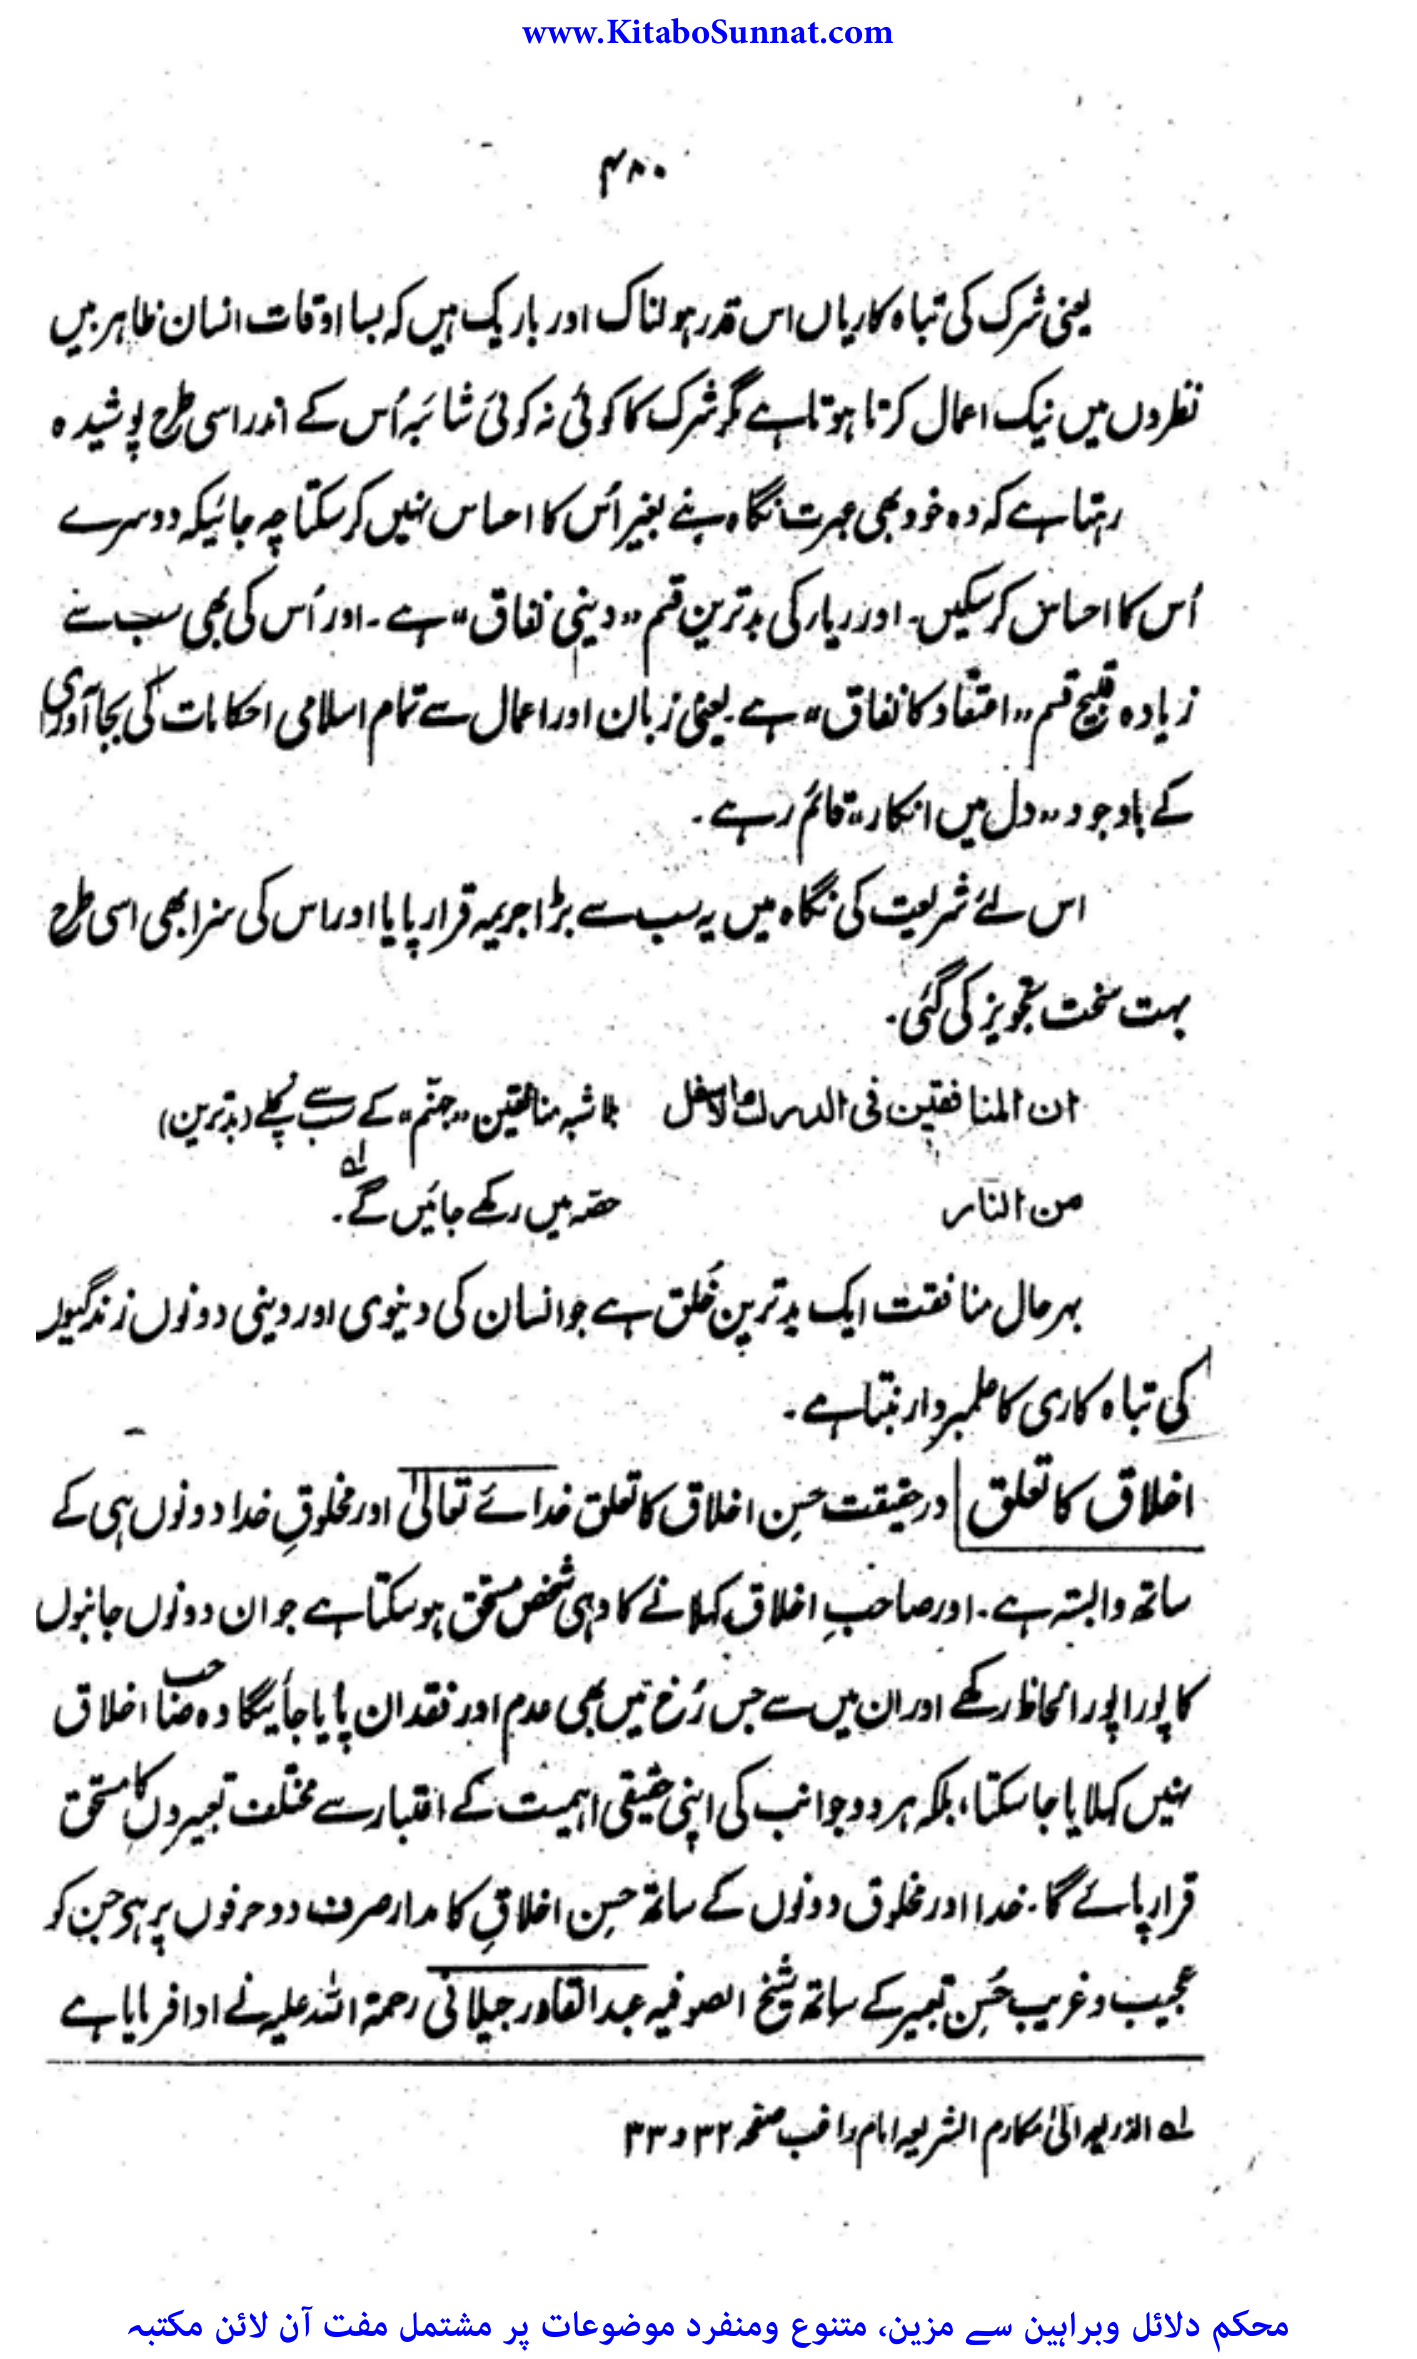 www.KitaboSunnat.com
۴۸۰
یعنی شرک کی تباہ کاریاں اس قدر ہولناک اور باریک ہیں کہ بسا اوقات انسان ظاہر بیں
نظروں میں نیک اعمال کرتا ہوتا ہے مگر شرک کا کوئی نہ کوئی شائبہ اُس کے اندر اسی طرح پوشیدہ
رہتا ہے کہ وہ خود بھی عبرت نگاہ بنے بغیر اُس کا احساس نہیں کر سکتا چہ جائیکہ دوسرے
اُس کا احساس کر سکیں۔ اور ریار کی بدترین قسم "دینی نفاق" ہے۔ اور اُس کی بھی سب سے
زیادہ قبیح قسم "اعتقاد کا نفاق" ہے۔ یعنی زبان اور اعمال سے تمام اسلامی احکامات کی بجا آوری
کے باوجود "دل میں انکار" قائم رہے۔
اس لئے شریعت کی نگاہ میں یہ سب سے بڑا جریمہ قرار پایا اور اس کی سزا بھی اسی طرح
بہت سخت تجویز کی گئی۔
ان المنافقین فی الدرک الاسفل بلا شبہ منافقین "جہنّم" کے سب سے نچلے (بدترین)
من النار حصّہ میں رکھے جائیں گے۔ لہ
بہر حال منافقت ایک بدترین خُلق ہے جو انسان کی دنیوی اور دینی دونوں زندگیوں
کی تباہ کاری کا علمبردار بنتا ہے۔
اخلاق کا تعلق درحقیقت حسنِ اخلاق کا تعلق خدائے تعالیٰ اور مخلوقِ خدا دونوں ہی کے
ساتھ وابستہ ہے۔ اور صاحبِ اخلاق کہلانے کا وہی شخص مستحق ہو سکتا ہے جو ان دونوں جانبوں
کا پورا پورا لحاظ رکھے اور ان میں سے جس رُخ میں بھی عدم اور فقدان پایا جائیگا وہ صاحب اخلاق
نہیں کہلایا جا سکتا، بلکہ ہر دو جوانب کی اپنی حقیقی اہمیت کے اعتبار سے مختلف تعبیروں کا مستحق
قرار پائے گا۔ خدا اور مخلوق دونوں کے ساتھ حسنِ اخلاقِ کا مدار صرف دو حرفوں پر ہی جن کو
عجیب و غریب حُسنِ تعبیر کے ساتھ شیخ الصوفیہ عبد القادر جیلانی رحمۃ اللہ علیہ نے ادا فرمایا ہے
لہ الذریعہ الیٰ مکارم الشریعہ امام راغب صفحہ ۳۲ و ۳۳
محکم دلائل وبراہین سے مزین، متنوع ومنفرد موضوعات پر مشتمل مفت آن لائن مکتبہ